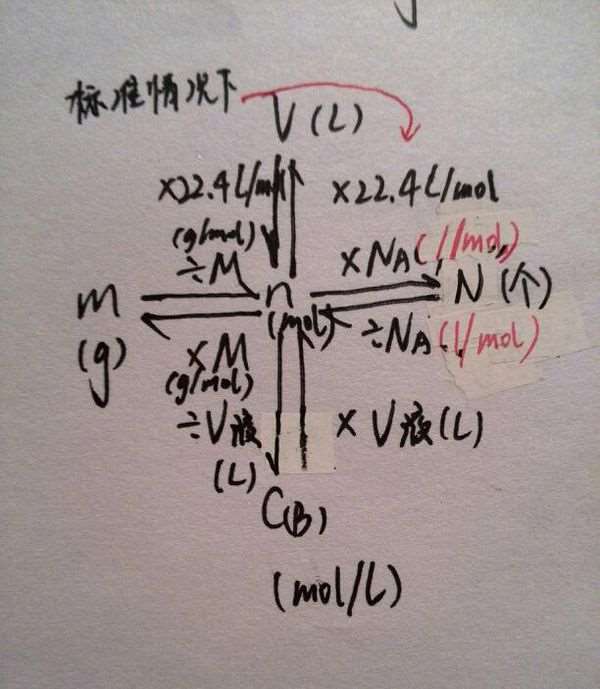 标准情况下
V (L)
×22.4L/mol ×22.4L/mol
(g/mol)
÷M
×NA (1/mol)
m n N (个)
(g) (mol)
×M ÷NA (1/mol)
(g/mol)
÷V液 × V液(L)
(L)
C(B)
(mol/L)